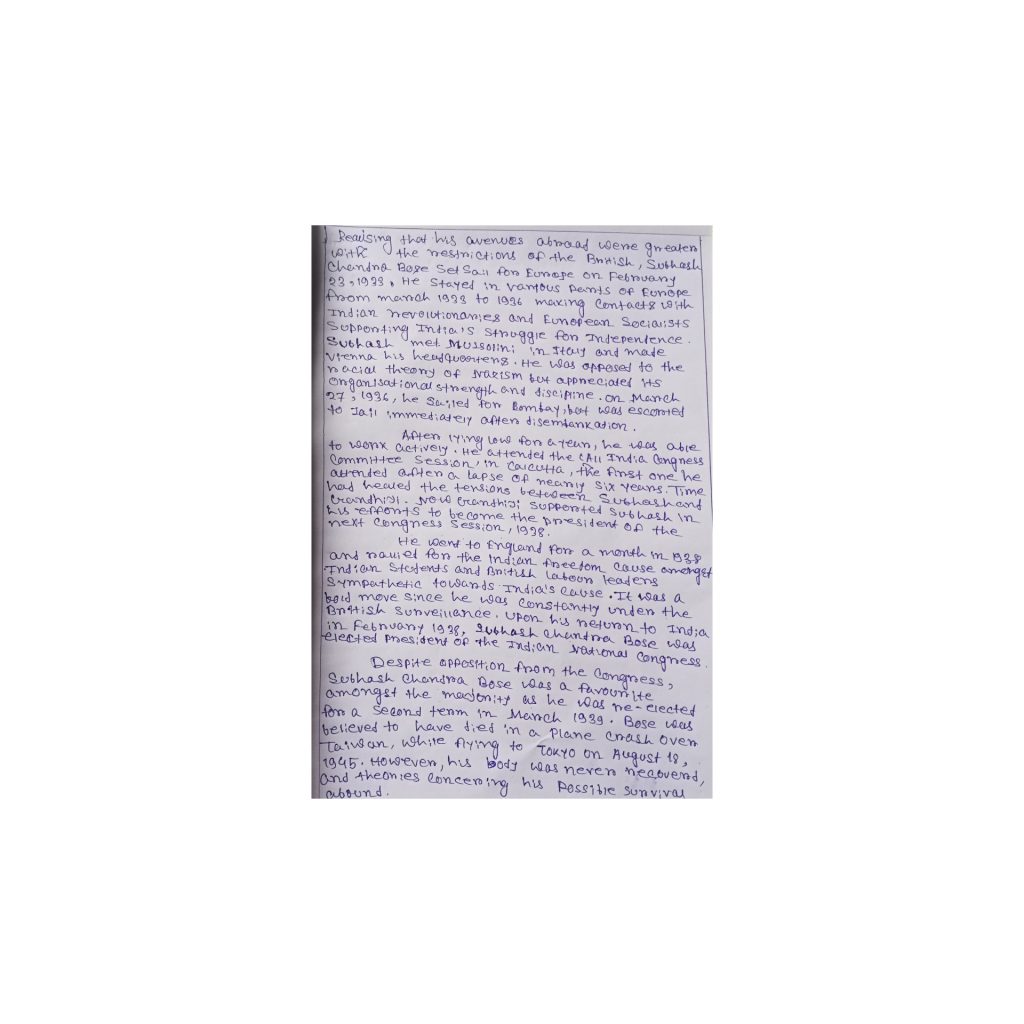 Realising that his avenues abroad were greater
with the restrictions of the British, Subhash
Chandra Bose set sail for Europe on February
23, 1933. He stayed in various parts of Europe
from march 1933 to 1936 making contacts with
Indian revolutionaries and European Socialists
supporting India's struggle for Independence.
Subhash met Mussolini in Italy and made
Vienna his headquarters. He was opposed to the
racial theory of Nazism but appreciated its
organisational strength and discipline. On March
27, 1936, he sailed for Bombay, but was escorted
to Jail immediately after disembarkation.
After lying low for a year, he was able
to work actively. He attended the All India Congress
Committee Session, in Calcutta, the first one he
attended after a lapse of nearly six years. Time
had healed the tensions between Subhash and
Gandhiji. Now Gandhiji supported Subhash in
his efforts to become the president of the
next Congress Session, 1938.
He went to England for a month in 1938
and rallied for the Indian freedom cause amongst
Indian Students and British labour leaders
sympathetic towards India's cause. It was a
bold move since he was constantly under the
British surveillance. Upon his return to India
in February 1938, Subhash Chandra Bose was
elected president of the Indian National Congress.
Despite opposition from the Congress,
Subhash Chandra Bose was a favourite
amongst the majority as he was re-elected
for a second term in March 1939. Bose was
believed to have died in a plane crash over
Taiwan, while flying to Tokyo on August 18,
1945. However, his body was never recovered,
and theories concerning his possible survival
abound.